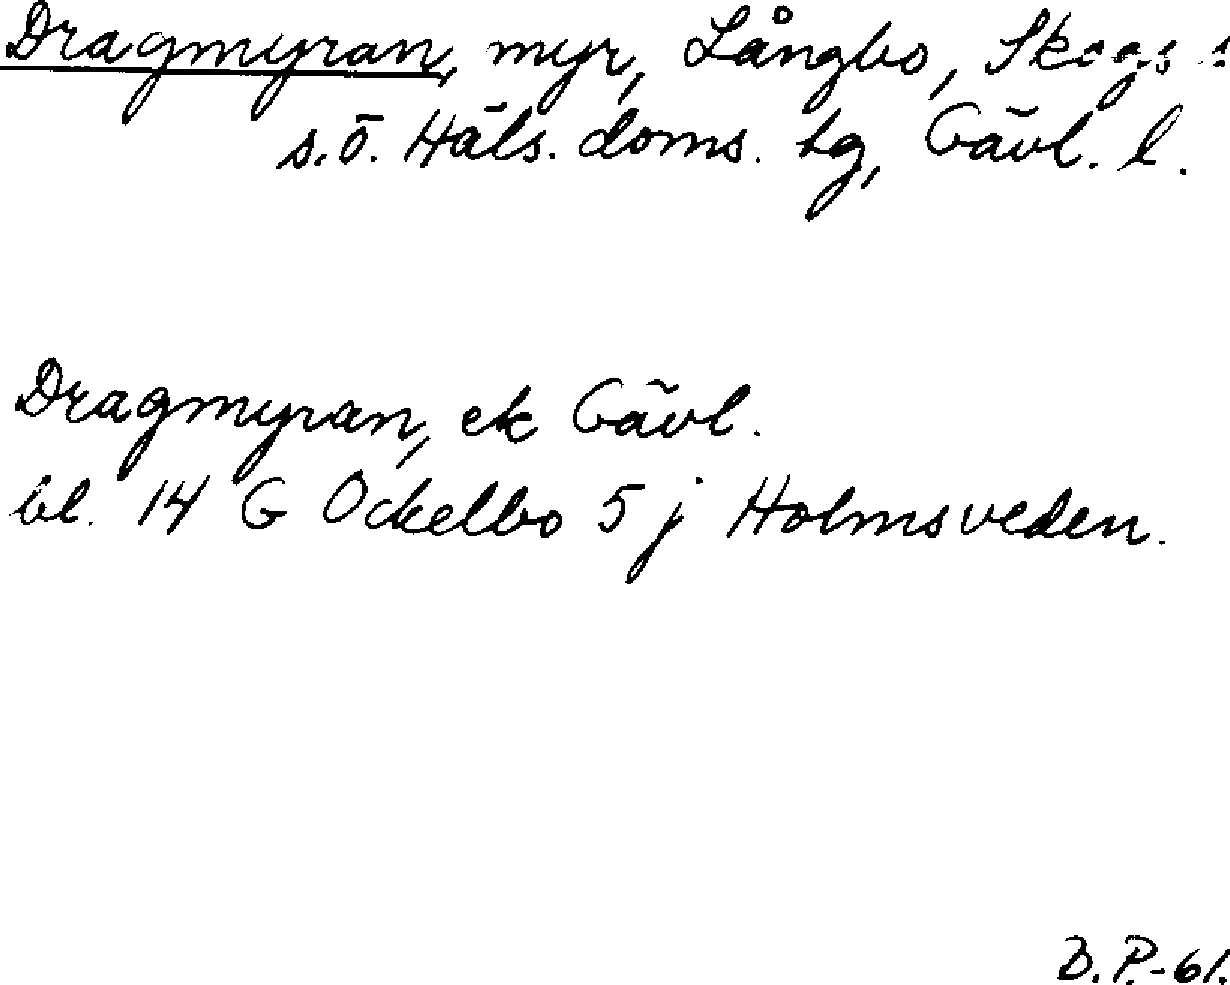 Dragmyran, myr, Långbo, Skogs s:n
s.ö. Häls. doms. tg, Gävl. l.
Dragmyran, ek Gävl.
bl. 14 G Ockelbo 5 j Holmsveden.
B.P.-61.